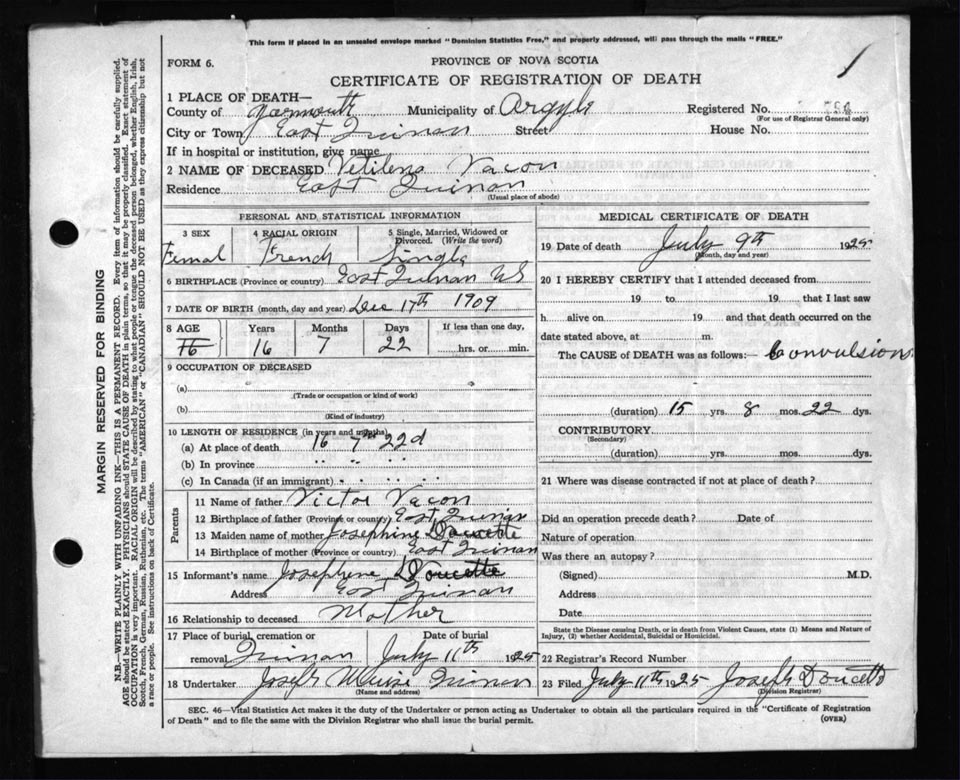 This form if placed in an unsealed envelope marked "Dominion Statistics Free," and properly addressed, will pass through the mails "FREE."
FORM 6.
PROVINCE OF NOVA SCOTIA
CERTIFICATE OF REGISTRATION OF DEATH
1 PLACE OF DEATH—
County of Yarmouth Municipality of Argyle Registered No.
(For use of Registrar General only)
City or Town East Quinan Street House No.
If in hospital or institution, give name
2 NAME OF DECEASED Vetilens Vacon
Residence East Quinan
(Usual place of abode)
PERSONAL AND STATISTICAL INFORMATION
3 SEX 4 RACIAL ORIGIN 5 Single, Married, Widowed or Divorced. (Write the word)
Femal French Single
6 BIRTHPLACE (Province or country) East Quinan NS
7 DATE OF BIRTH (month, day and year) Dec 17th 1909
8 AGE Years Months Days If less than one day,
16 16 7 22 hrs. or min.
9 OCCUPATION OF DECEASED
(a)
(Trade or occupation or kind of work)
(b)
(Kind of industry)
10 LENGTH OF RESIDENCE (in years and months)
(a) At place of death 16 7m 22d
(b) In province " " " "
(c) In Canada (if an immigrant) " " " "
Parents
11 Name of father Victor Vacon
12 Birthplace of father (Province or country) East Quinan
13 Maiden name of mother Josephine Doucette
14 Birthplace of mother (Province or country) East Quinan
15 Informant's name Josephene Doucette
Address East Quinan
16 Relationship to deceased Mother
17 Place of burial, cremation or removal Quinan Date of burial July 11th 1925
18 Undertaker Joseph Quinan
(Name and address)
MEDICAL CERTIFICATE OF DEATH
19 Date of death July 9th 1925
(Month, day and year)
20 I HEREBY CERTIFY that I attended deceased from
19 to 19 that I last saw
h alive on 19 and that death occurred on the
date stated above, at m.
The CAUSE OF DEATH was as follows:— Convulsions
(duration) 15 yrs. 8 mos. 22 dys.
CONTRIBUTORY
(Secondary)
(duration) yrs. mos. dys.
21 Where was disease contracted if not at place of death?
Did an operation precede death? Date of
Nature of operation
Was there an autopsy?
(Signed) M.D.
Address
Date
State the Disease causing Death, or in death from Violent Causes, state (1) Means and Nature of Injury, (2) whether Accidental, Suicidal or Homicidal.
22 Registrar's Record Number
23 Filed July 11th 1925 Joseph Doucette
(Division Registrar)
SEC. 46—Vital Statistics Act makes it the duty of the Undertaker or person acting as Undertaker to obtain all the particulars required in the "Certificate of Registration
of Death" and to file the same with the Division Registrar who shall issue the burial permit.
(OVER)
MARGIN RESERVED FOR BINDING
N.B.—WRITE PLAINLY WITH UNFADING INK—THIS IS A PERMANENT RECORD. Every item of information should be carefully supplied.
AGE should be stated EXACTLY. PHYSICIANS should STATE CAUSE OF DEATH in plain terms, so that it may be properly classified. Exact statement of
OCCUPATION is very important. RACIAL ORIGIN will be described by stating to what people or tongue the deceased person belonged, whether English, Irish,
Scotch, French, German, Russian, Ruthenian, etc. The terms "AMERICAN" or "CANADIAN" SHOULD NOT BE USED as they express citizenship but not
a race or people. See instructions on back of Certificate.